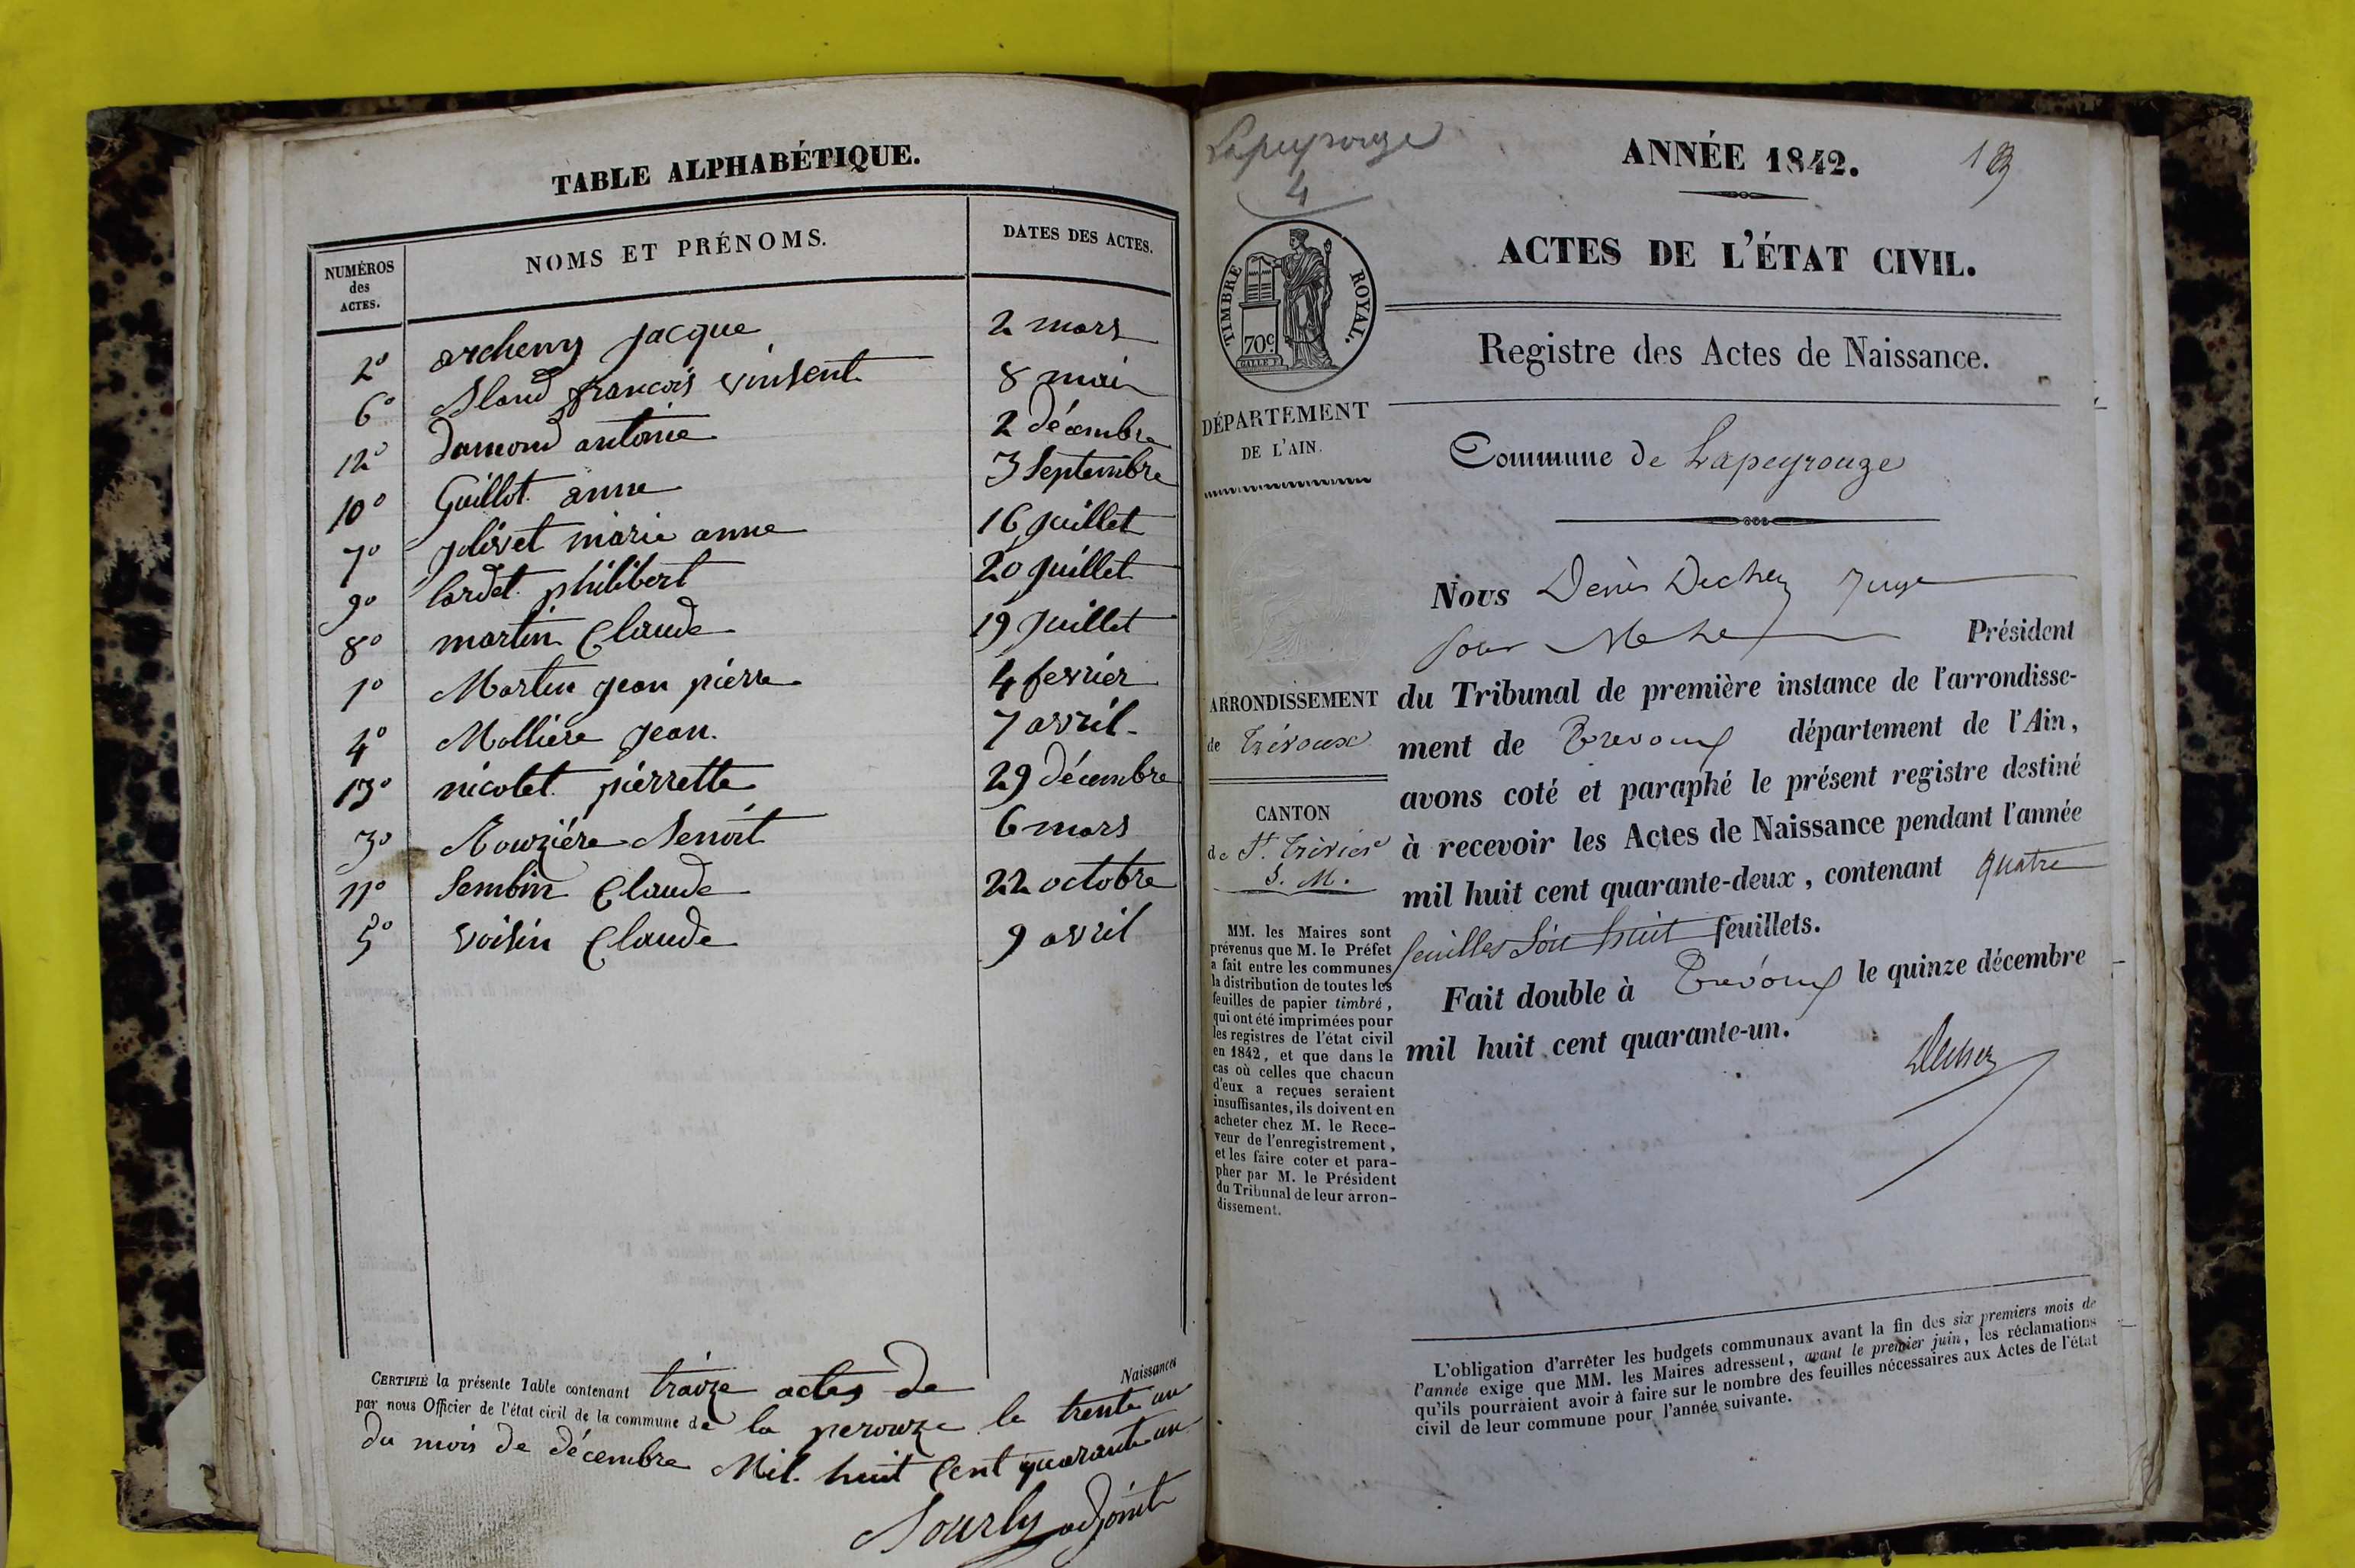 TABLE ALPHABÉTIQUE.
NUMÉROS des ACTES.
NOMS ET PRÉNOMS.
DATES DES ACTES.
2° archeny jacque 2 mars
6° Bland francois vinsent 8 mai
12° damond antoine 2 décembre
10° Guillot anne 3 Septembre
7° jolivet marie anne 16 juillet
9° lardet philibert 20 juillet
8° martin Claude 19 juillet
1° Martin jean pierre 4 fevrier
4° Mollière jean. 7 avril
13° nicolet pierrette 29 décembre
3° Rouzière Benoit 6 mars
11° Sembin Claude 22 octobre
5° voisin Claude 9 avril
CERTIFIÉ la présente Table contenant traize actes de Naissances
par nous Officier de l'état civil de la commune de la perouze le trente un
du mois de décembre Mil huit Cent quarante un
adjoint
Lapeyrouze
4
ANNÉE 1842.
TIMBRE ROYAL.
70c
ACTES DE L'ÉTAT CIVIL.
Registre des Actes de Naissance.
DÉPARTEMENT
DE L'AIN.
Commune de Lapeyrouze
Nous Denis Decher Juge
pour Président
ARRONDISSEMENT
de Trévoux
du Tribunal de première instance de l'arrondisse-
ment de Trevoux département de l'Ain,
avons coté et paraphé le présent registre destiné
à recevoir les Actes de Naissance pendant l'année
mil huit cent quarante-deux, contenant quatre
feuilles soit huit feuillets.
Fait double à Trévoux le quinze décembre
mil huit cent quarante-un.
Decher
CANTON
de St. Trivier
S. M.
MM. les Maires sont
prévenus que M. le Préfet
a fait entre les communes
la distribution de toutes les
feuilles de papier timbré,
qui ont été imprimées pour
les registres de l'état civil
en 1842, et que dans le
cas où celles que chacun
d'eux a reçues seraient
insuffisantes, ils doivent en
acheter chez M. le Rece-
veur de l'enregistrement,
et les faire coter et para-
pher par M. le Président
du Tribunal de leur arron-
dissement.
L'obligation d'arrêter les budgets communaux avant la fin des six premiers mois de
l'année exige que MM. les Maires adressent, avant le premier juin, les réclamations
qu'ils pourraient avoir à faire sur le nombre des feuilles nécessaires aux Actes de l'état
civil de leur commune pour l'année suivante.